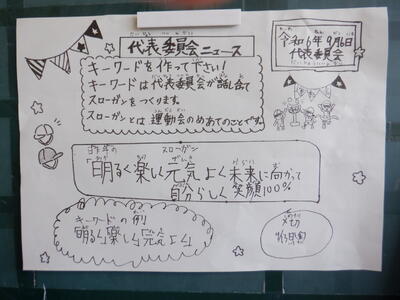 代表委員会ニュース
令和6年9月6日
代表委員会
キーワードを作って下さい!
キーワードは代表委員会が話し合て
スローガンをつくります。
スローガンとは運動会のめあてのことです。
昨年の スローガン
「明るく楽しく元気よく未来に向かって
自分らしく笑顔100%
キーワードの例!
「明るく」「楽しく」「元気よく」
〆切